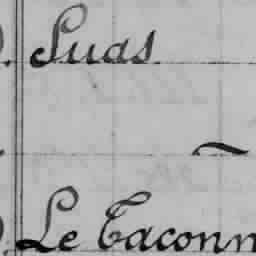 Luas
~
Le Taconn